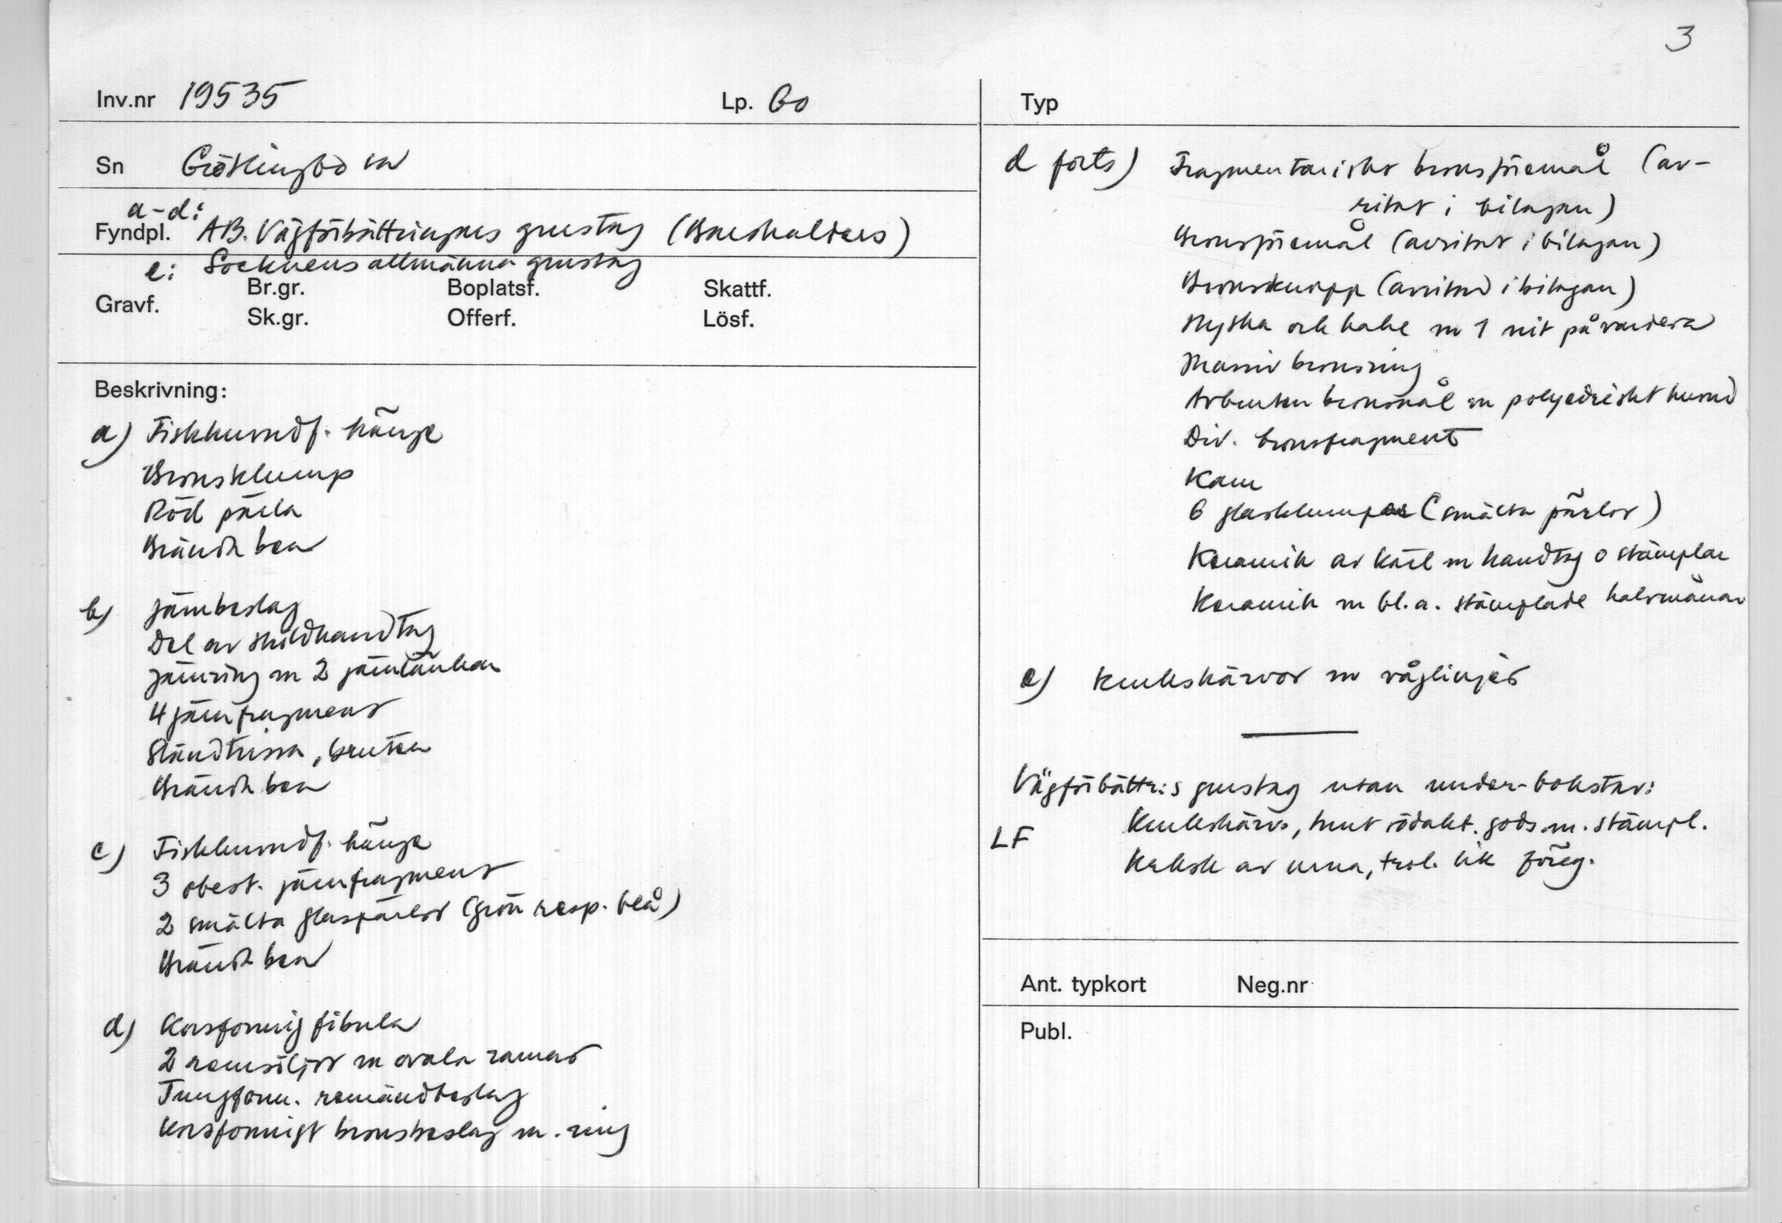 3
Inv.nr 19535 Lp. Go
Sn Grötlingbo sn
a-d:
Fyndpl. AB. Vägförbättringars grustag (Barshalders)
e: Socknens allmänna grustag
Gravf. Br.gr. Boplatsf. Skattf.
Sk.gr. Offerf. Lösf.
Beskrivning:
a) Fiskhuvudf. hänge
Bronsklump
Röd pärla
Brända ben
b) Järnbeslag
Del av sköldhandtag
Järnring m 2 järnlänkar
4 järnfragment
Sländtrissa, bruten
Brända ben
c) Fiskhuvudf. hänge
3 obest. järnfragment
2 smälta glaspärlor (grön resp. blå)
Brända ben
d) Korsformig fibula
2 remsöljor m ovala ramar
Tungform. remändbeslag
Korsformigt bronsbeslag m. ring
Typ
d forts) Fragmentariskt bronsföremål (av-
ritat i bilagan)
Bronsföremål (avritat i bilagan)
Bronsknapp (avritad i bilagan)
Hyska och hake m 1 nit på vardera
Massiv bronsring
Avbruten bronsnål m polyedriskt huvud
Div. bronsfragment
Kam
6 glasklumpar (smälta pärlor)
Keramik av kärl m handtag o stämplar
Keramik m bl.a. stämplade halvmånar
e) Krukskärvor m våglinjer
Vägförbättr:s grustag utan under-bokstav:
LF Krukskärva, tunt rödakt. gods m. stämpl.
av urna, trol. lik föreg.
Ant. typkort Neg.nr
Publ.